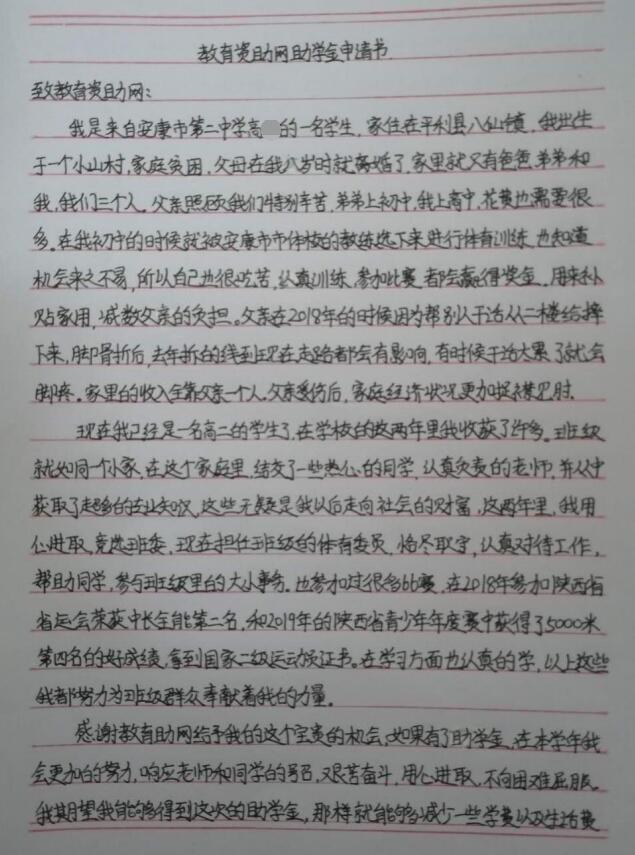 教育资助网助学金申请书
致教育资助网：
我是来自安康市第二中学高 的一名学生，家住在平利县八仙镇，我出生
于一个小山村，家庭贫困，父母在我八岁时就离婚了，家里就又有爸爸，弟弟和
我，我们三个人。父亲照顾我们特别辛苦，弟弟上初中，我上高中，花费也需要很
多。在我初中的时候就被安康市市体校的教练选下来进行体育训练，也知道
机会来之不易，所以自己也很吃苦，认真训练，参加比赛，都会赢得奖金。用来补
贴家用，减轻父亲的负担。父亲在2018年的时候因为帮别人干活从二楼给摔
下来，脚骨折后，去年拆的线到现在走路都会有影响，有时候干活太累了就会
脚疼。家里的收入全靠父亲一个人。父亲受伤后，家庭经济状况更加捉襟见肘。
现在我已经是一名高二的学生了，在学校的这两年里我收获了许多。班级
就如同一个小家，在这个家庭里，结交了一些热心的同学，认真负责的老师，并从中
获取了足够的专业知识，这些无疑是我以后走向社会的财富，这两年里，我用
心进取，竞选班委，现在担任班级的体育委员，恪尽职守，认真对待工作，
帮助同学，参与班级里的大小事务。也参加过很多比赛，在2018年参加陕西省
省运会荣获中长全能第二名，和2019年的陕西省青少年年度赛中获得了5000米
第四名的好成绩，拿到国家二级运动员证书。在学习方面也认真的学，以上这些
我都努力为班级群众奉献着我的力量。
感谢教育助网给予我的这个宝贵的机会，如果有了助学金，在本学年我
会更加的努力，响应老师和同学的号召，艰苦奋斗，用心进取，不向困难屈服。
我期望我能够得到这次的助学金，那样就能够减少一些学费以及生活费